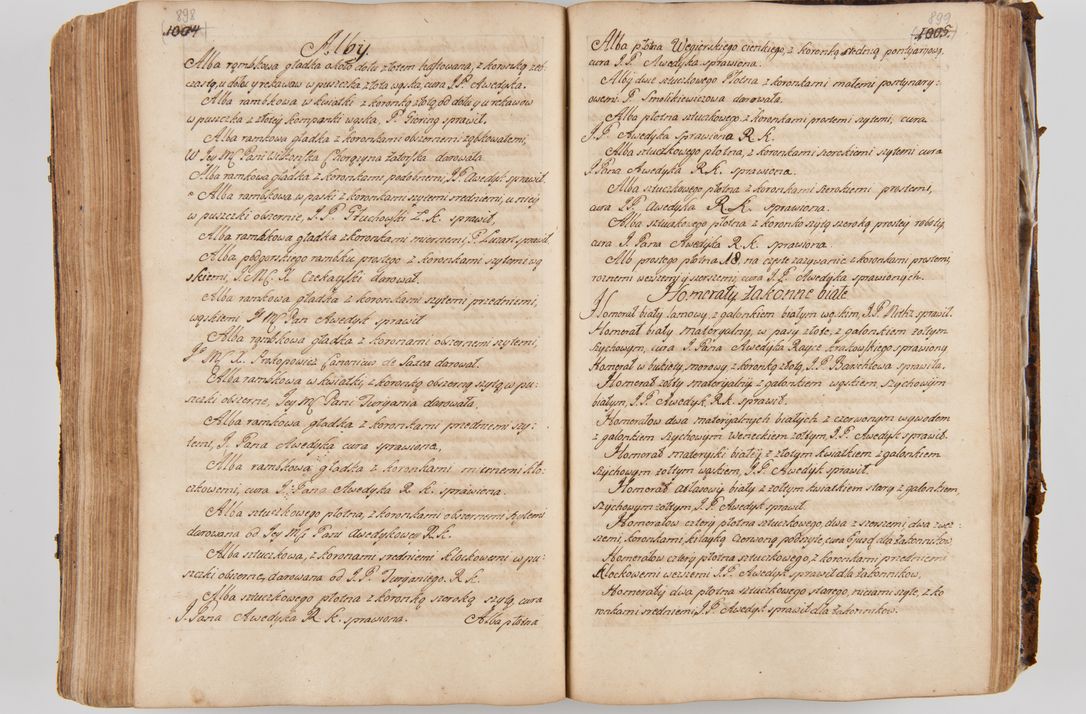 898
1004
Alby
Alba rąmbkowa gładka około dołu złotem haftowana, z koronką zęb-
czastą, u dołu y rękawow w puszecka złota wąska, cura J.P. Awedyka.
Alba rambkowa w kwiatki z koronką złotą do dołu y u rękawow
w puszecka z złotey kompanki wąska, P. Giering sprawił.
Alba ramkowa gładka z koronkami obszernemi ząbkowatemi,
W Jey Mć Pani Chorążyna darowała
Alba ramkowa gładka z koronkami podobnemi, J.P. Awedyk sprawił.
Alba rambkowa w paski z koronkami szytemi sredniemi, u niey
w puszczki obszerne, J.P. Głuchowski R. K. sprawił,
Alba rambkowa gładka z koronkami miernemi, P. Luzart sprawił.
Alba podgorskiego rambku prostego z koronkami szytemi wą
skiemi, J.M.C.X. Czekayski darował.
Alba ramkowa gładka z koronkami szytemi przedniemi,
wąskiemi Jº Mć Pan Awedyk sprawił
Alba rąmbkowa gładka z koronami obszernemi szytemi,
Jº Mć X. Prokopowicz Canonicus de Skarca darował.
Alba ramskowa w kwiatki, z koronką obszerną szytą, w pu-
szczki obszerne, Jey Mć Pani Turgania darowała,
Alba ramkowa gładka z koronkami przedniemi szy-
temi, J. Pana Awedyka cura sprawiona,
Alba rambkowa gładka z koronkami miernemi klo-
czkowemi, cura J. Pana Awedyka R. K. sprawiona.
Alba sztuczkowego płotna, z koronkami obszernemi szytemi
darowana od Jey Mći Pani Awedykowey R.K.
Alba sztuczkowa, z koronami sredniemi kloczkowemi w pu
szczki obszerne, darowana od J.P. Turganiego. R.k.
Alba sztuczkowego płotna z koronką szeroką szytą, cura
J. Pana Awedyka R K. sprawiona.
Alba płotna
899
1005.
Alba płotna Węgierskiego cienkiego, z koronką srednią pontynarową,
cura J.P. Awedyka sprawiona.
Alby dwie sztuczkowego Płotna z koronkami małemi pontynary-
owemi. P. Smolikiewiczowa darowała.
Alba płotna sztuczkowego z koronkami prostemi szytemi, cura
J.P. Awedyka sprawiona R. K.
Alba sztuczkowego płotna, z koronkami szerokiemi szytemi cura
J. Pana Awedyka R.K. sprawiona.
Alba sztuczkowego płotna z koronkami szerokiemi prostemi,
cura J.P. Awedyka R. K. sprawiona.
Alba sztuczkowego płotna z koronko szytą szeroką prostey roboty,
cura J. Pana Awedyka R.K. sprawiona.
Alb prostego płotna 18. na częste zazywanie z koronkami prostemi,
roznemi węższemi y szerszemi, cura J.P. Awedyka sprawionych.
Homerały Zakonne białe
Homerał biały lamowy, z galonkiem białym wąskim, J.P. sprawił.
Homerał biały materyalny, w pasy złote, z galonkiem zołtym
szychowym, cura J. Pana Awedyka Rayce Krakowskiego sprawiony
Homerał w bukiety, morowy z koronką złotą, J.P. Banchlowa sprawiła.
Homerał zołty materyalny z galonkiem wąskiem, szychowym
białym, J.P. Awedyk R.K. sprawił.
Homerałow dwa materyalnych białych z czerwonym wywodem
z galonkiem szychowym Weneckiem zołtym, J.P. Awedyk sprawił.
Homerał materyiki białej z złotym kwiatkiem z galonkiem
szychowym zołtym wąskiem, J.P. Awedyk sprawił.
Homerał Atłasowy biały z zołtym kwiatkiem stary z galonkiem,
szychowym zołtym, J.P. Awedyk sprawił.
Homerałow cztery płotna sztuczkowego, dwa z szerszemi, dwa z węż-
szemi, koronkami, kitayką czerwoną podszyte, cura ejusd. dla zakonnikow.
Homerałow cztery płotna sztuczkowego, z koronkami przedniemi
klockowemi węższemi J.P. Awedyk sprawił dla zakonnikow,
Homerały dwa płotna sztuczkowego starego, niciami szyte, z ko
ronkami sredniemi, J.P. Awedyk sprawił dla zakonnikow.